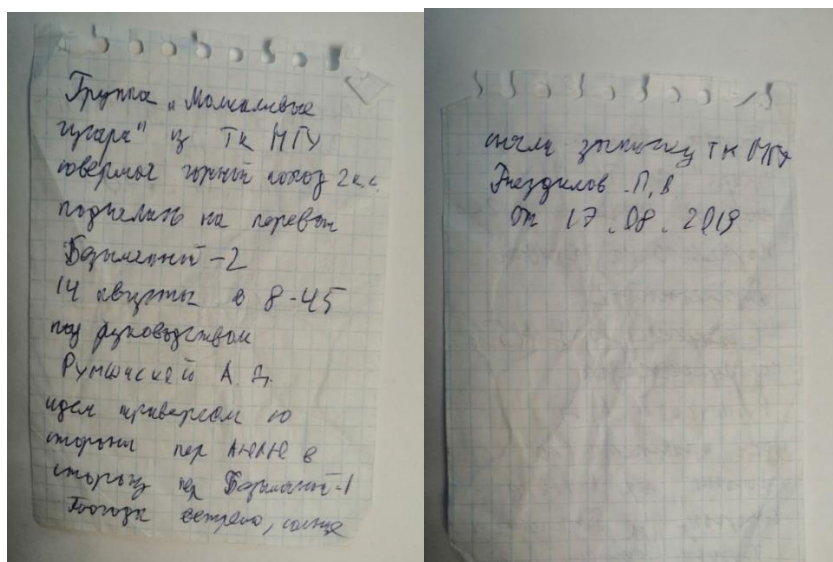 Группа „Молчаливые
гусары" из ТК МГУ
совершая горный поход 2 к.с.
поднялись на перевал
Безымянный-2
14 августа в 8-45
под руководством
Румянской А. Д.
идем траверсом со
стороны пер АЮЛЮ в
сторону пер Безымянный-1
Погода ветрено, солнце
сняли записку ТК МГУ
Гнездилов П, В
от 17.08.2019